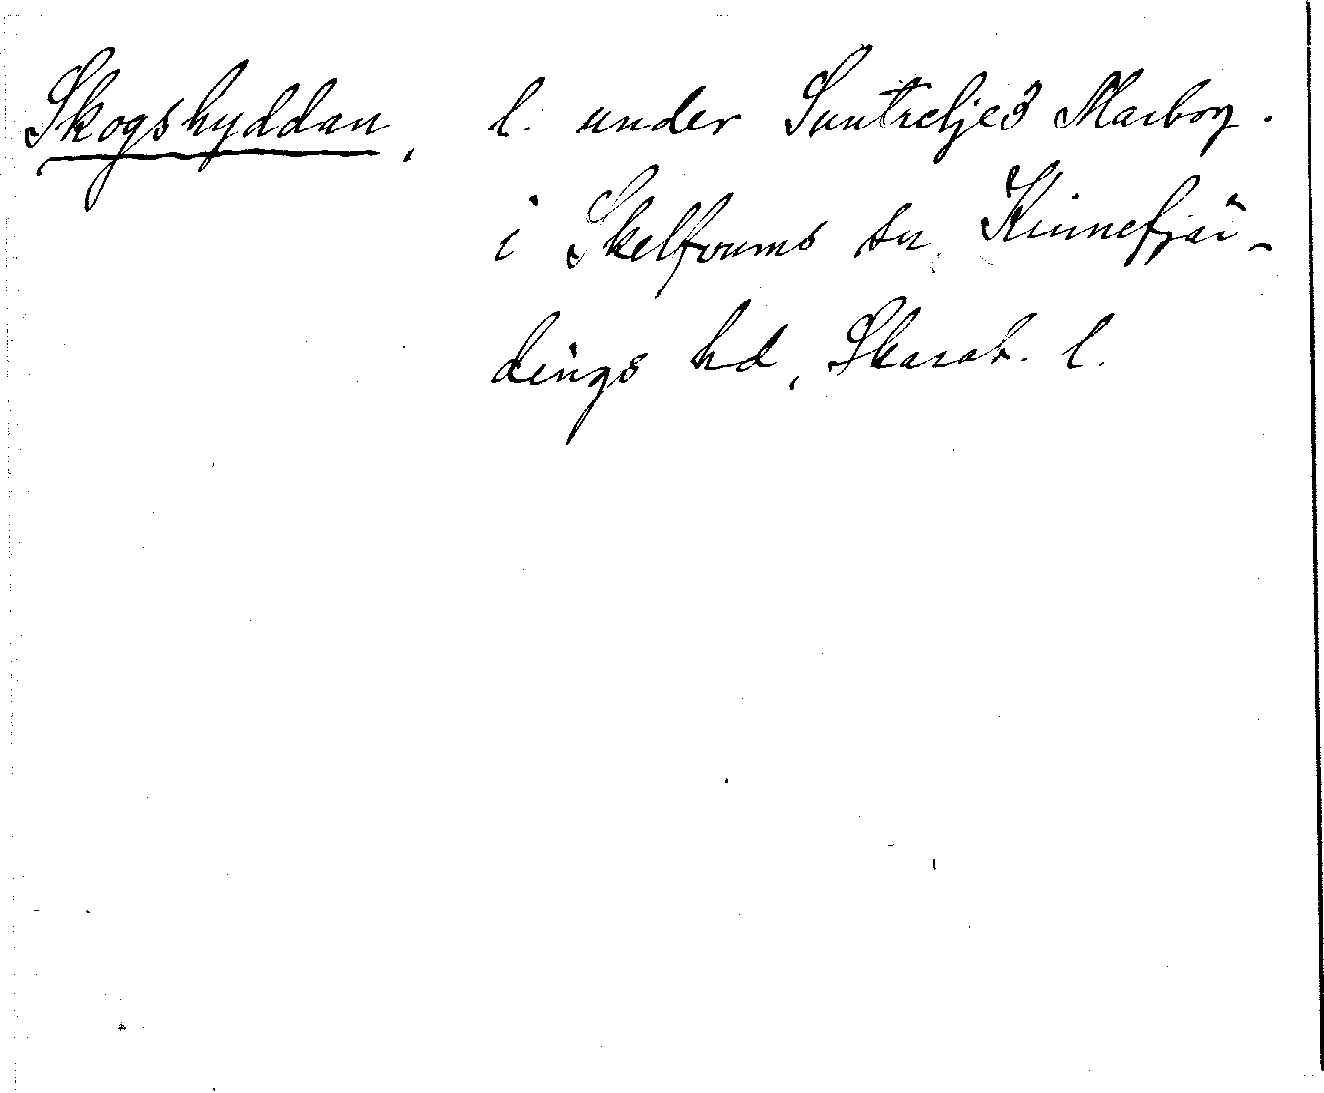 Skogshyddan, l. under Suntetelje 3 Marbog.
i Skelfvums sn, Kinnefjär-
dings hd, Skarab. l.